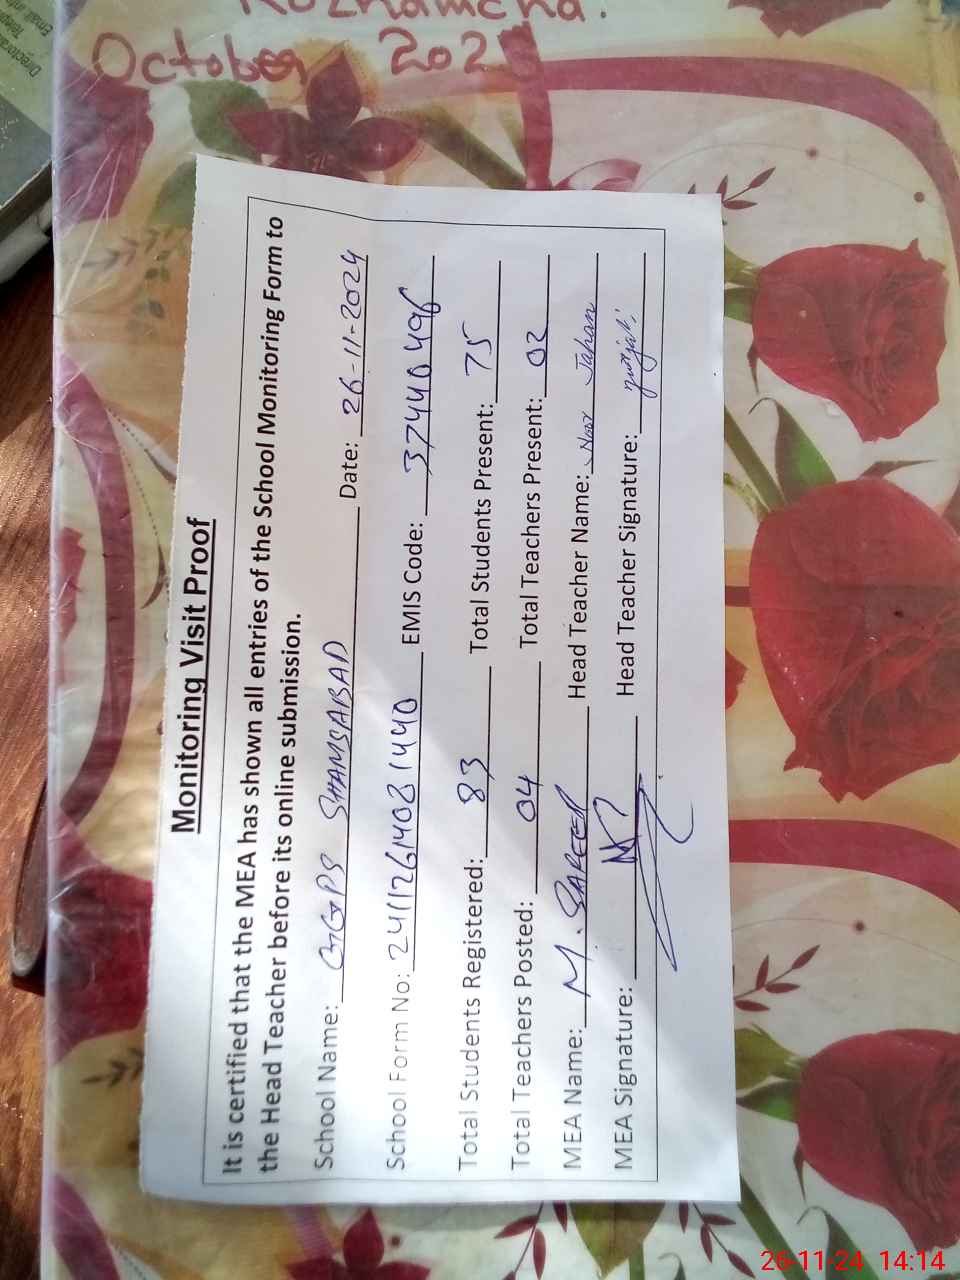 Roznamcha.
October 202
Monitoring Visit Proof
It is certified that the MEA has shown all entries of the School Monitoring Form to
the Head Teacher before its online submission.
School Name: GGPS SHAMSABAD Date: 26-11-2024
School Form No: 241126140281440 EMIS Code: 37440496
Total Students Registered: 83 Total Students Present: 75
Total Teachers Posted: 04 Total Teachers Present: 02
MEA Name: M. SAFEER Head Teacher Name: Noor Jahan
MEA Signature: Head Teacher Signature:
26-11-24 14:14